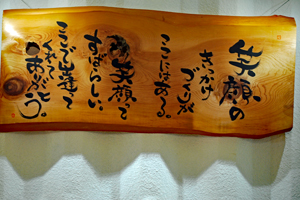 笑顔の
きっかけ
づくりが
ここにはある。
笑顔って
すばらしい。
ここで出逢えて
くれて
ありがとう。